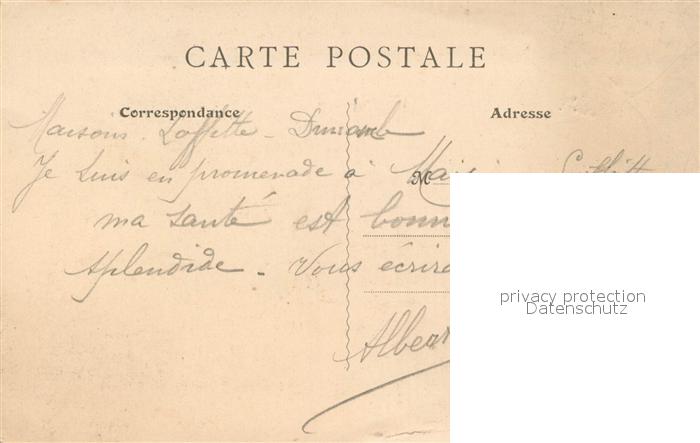 CARTE POSTALE
Correspondance
Adresse
Maisons Laffitte - 
Je suis en promenade à
M
ma santé est bonn
splendide - Vous écrira
Albert
privacy protection
Datenschutz